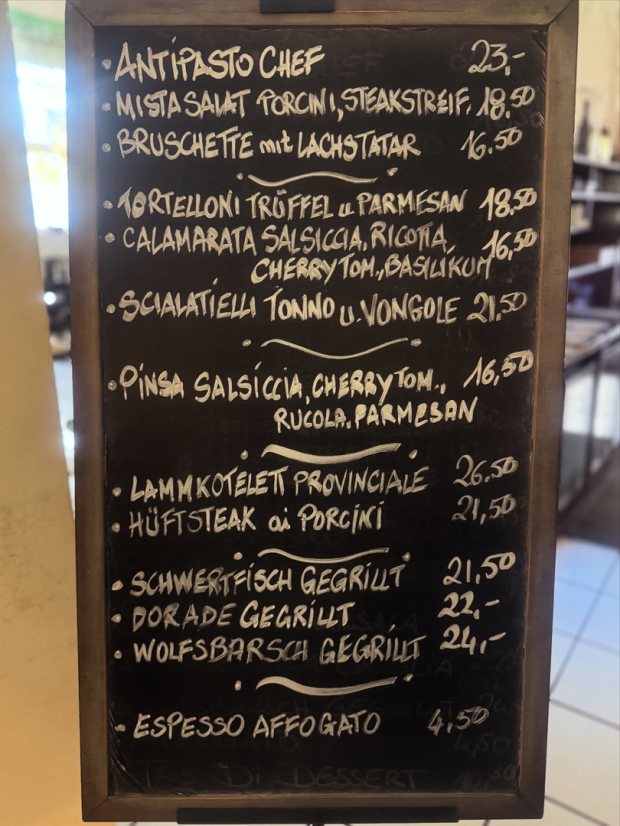 • ANTIPASTO CHEF 23,-
• MISTASALAT PORCINI, STEAKSTREIF. 18.50
• BRUSCHETTE mit LACHSTATAR 16.50
• TORTELLONI TRÜFFEL u. PARMESAN 18,50
• CALAMARATA SALSICCIA, RICOTTA, 16,50
CHERRY TOM., BASILIKUM
• SCIALATIELLI TONNO u. VONGOLE 21,50
• PINSA SALSICCIA, CHERRY TOM., 16,50
RUCOLA, PARMESAN
• LAMMKOTELETT PROVINCIALE 26.50
• HÜFTSTEAK ai PORCINI 21,50
• SCHWERTFISCH GEGRILLT 21,50
• DORADE GEGRILLT 22,-
• WOLFSBARSCH GEGRILLT 24,-
• ESPESSO AFFOGATO 4.50
4,50
DI DESSERT